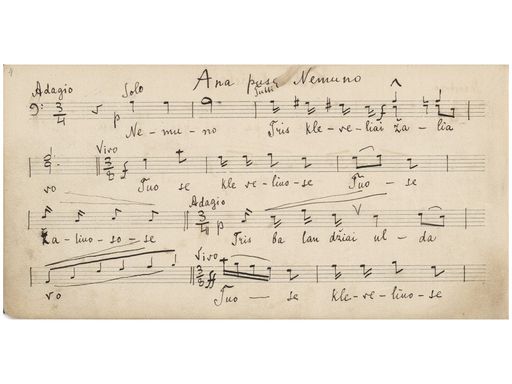 Ana pusę Nemuno
Adagio Solo Tutti
3/4 p f
Ne - mu - no Tris kle - ve - liai ža - lia
Vivo
3/8 f
vo Tuo se kle ve - liuo - se Tuo - se
Adagio
3/4
Ža - liuo - so - se Tris ba lan džiai ul - da
Vivo
3/8 ff
vo Tuo - se kle - ve - liuo - se